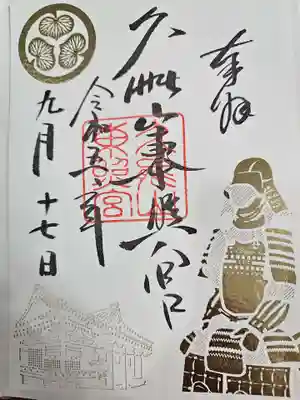 奉拝
久能山東照宮
令和五年
九月十七日
久能山
東照宮